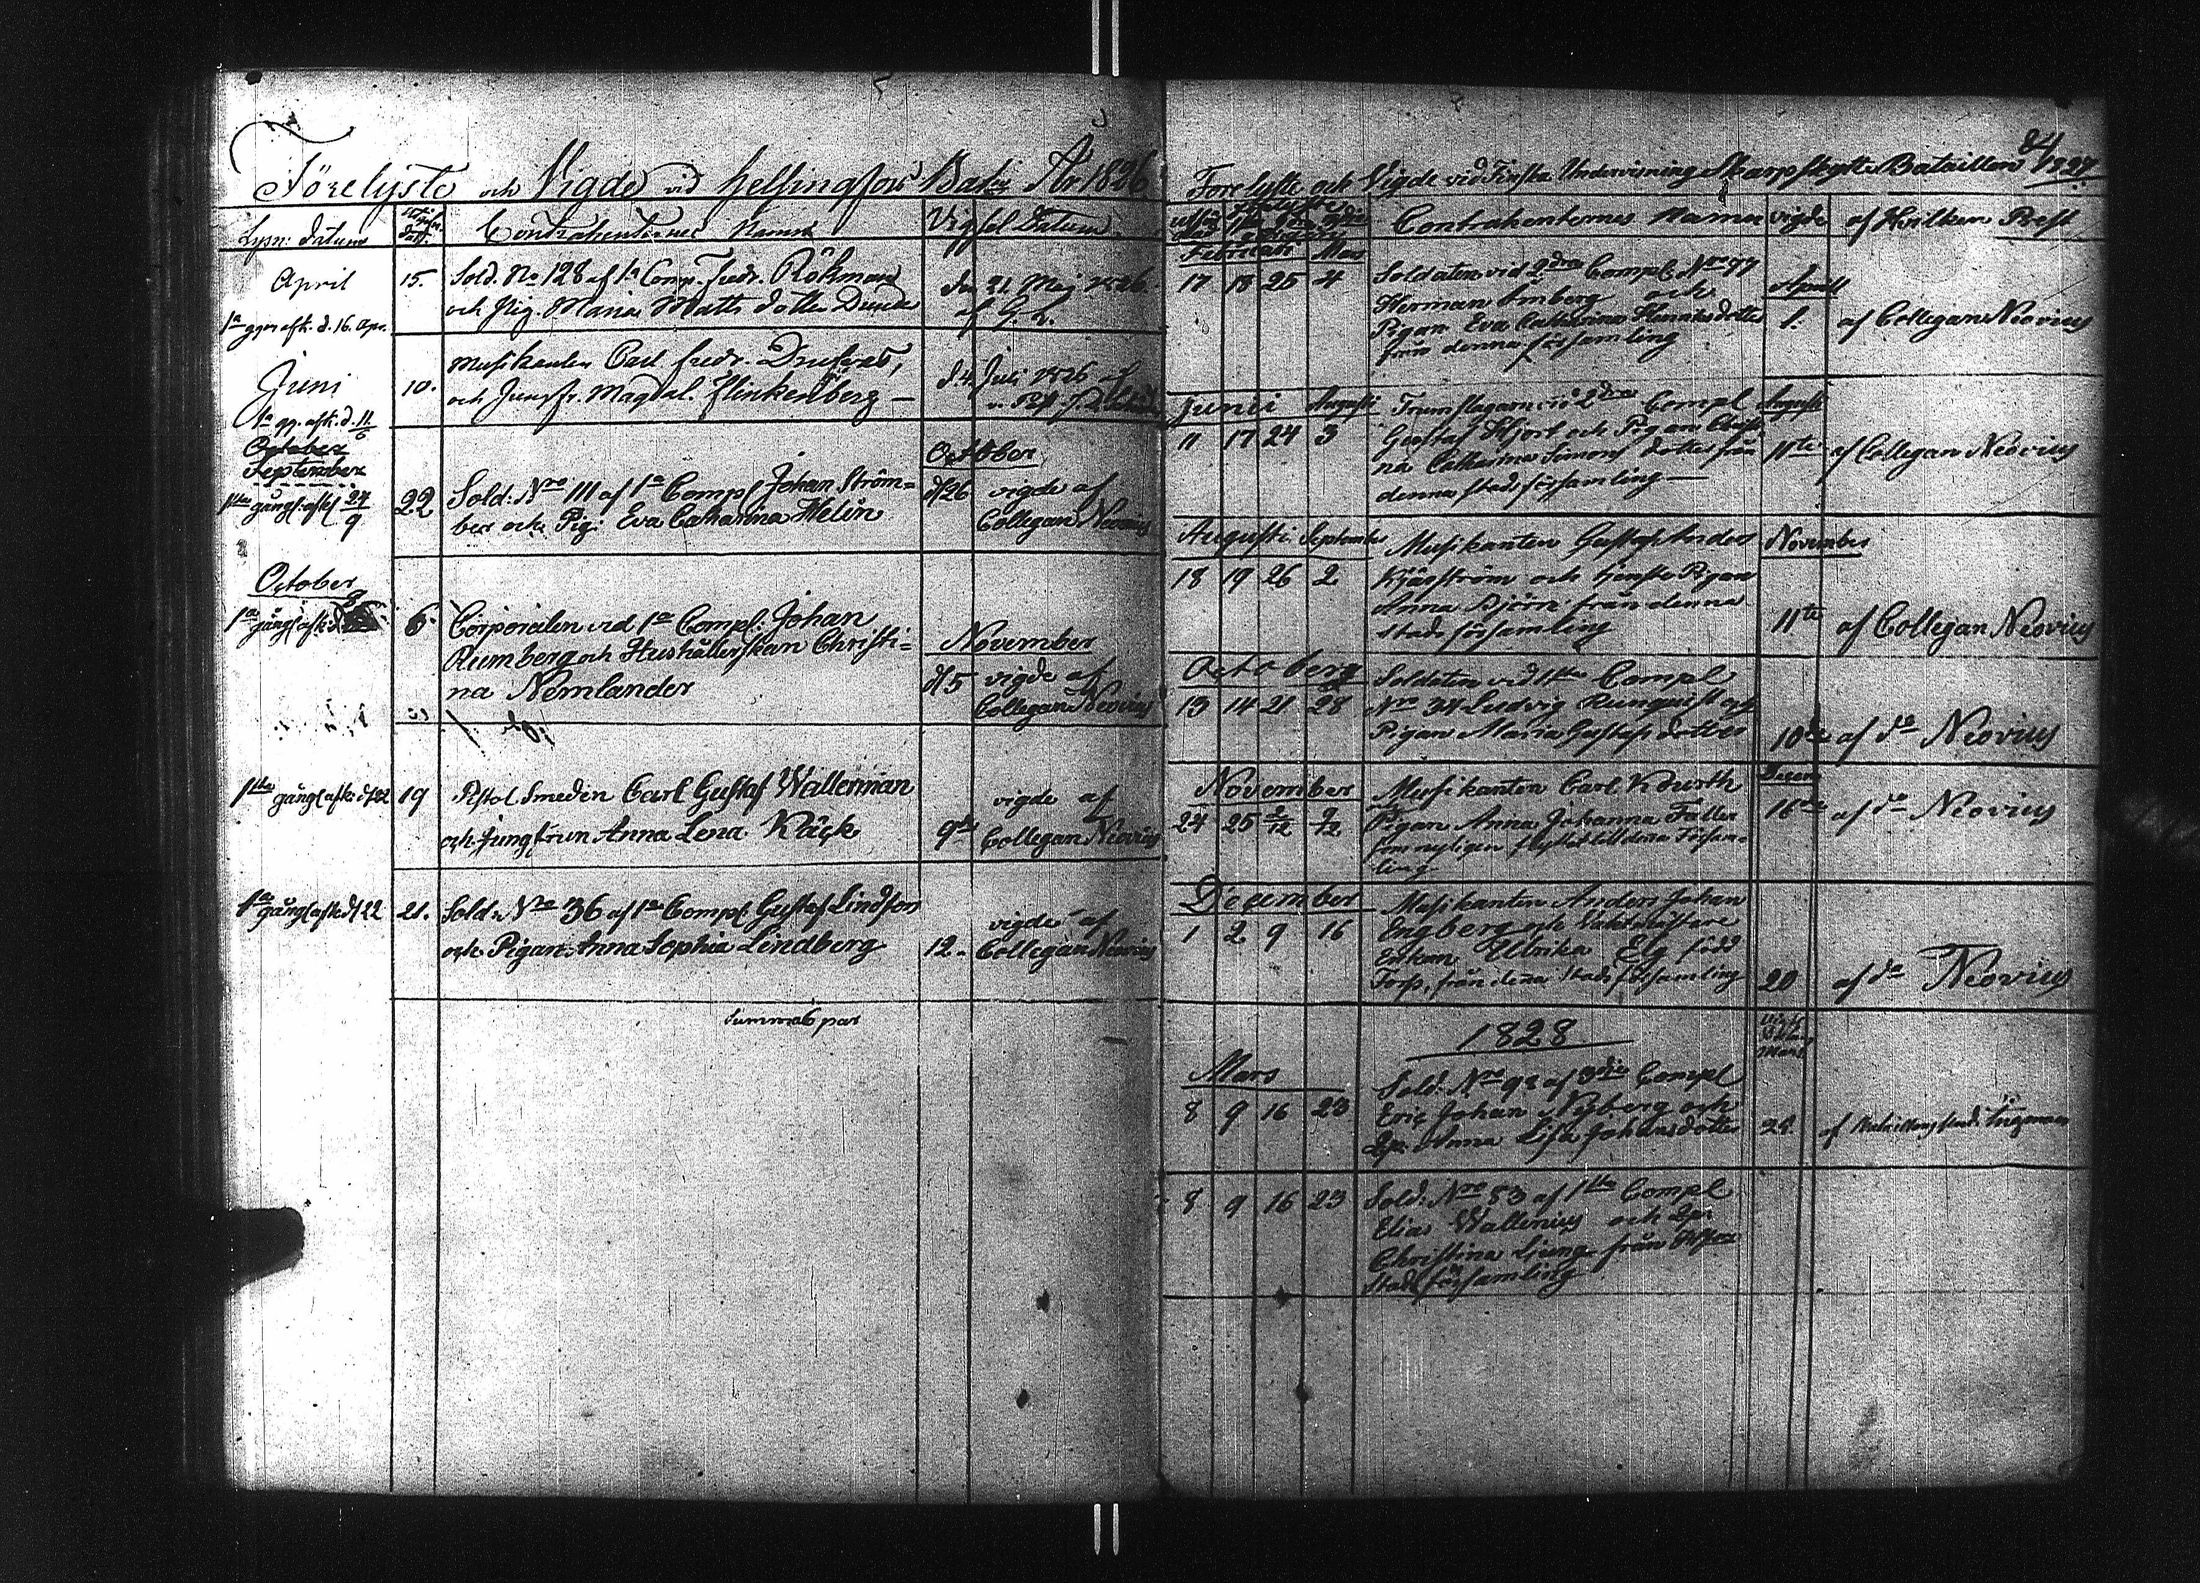 Förelyste och Vigde vid Helsingfors Bat: År 1826
Lysn: datum
Contrahenternes Namn
Vigsel Datum
April
15.
Sold. No 128 af 1a Comp. Fredr. Rökman
den 21 Maj 1826
1a ggn afk. d. 16. Apr.
och Pig. Maria Matts dotter
af G. L.
Juni
10.
Musikanten Carl Fredr.
d. 4 Juli 1826 af
1a gg. afk. d. 11/6
och Jungfr. Magdal. Flinkenberg —
October
September
October
1sta gång: afk 24/9
22
Sold: Nro 111 af 1a Comp Johan Ström=
d 26 vigde af
ber och Pig: Eva Catharina Helin
Collegan Neovius
October
1a gång afk: d
6.
Corporalen vid 1a Comp: Johan
Rumberg och Hushållerskan Christi=
November
na Nemlander
d 5 vigde af
Collegan Neovius
1sta gång afk: d 22
19
Pistol Smeden Carl Gustaf Wallerman
vigde af
och Jungfrun Anna Lena Käck
9de Collegan Neovius
1a gång afk d 22
21.
Sold: Nro 36 af 1a Comp Gustaf Lindfors
vigde af
och Pigan Anna Sophia Lindberg
12. Collegan Neovius
Summa 6 par
84
Förelyste och Vigde vid Finska Undervisning Skarpskytte Bataillon 1827
Contrahenternes Namn
vigde
af Hvilken Prest
Februari Mars
17 18 25 4
Soldaten vid 2dra Comp: Nro 77
Aprill
Herman och
1.
af Collegan Neovius
Pigan Eva Catharina Henriksdotter
från denna församling
Junii Augusti
Trumslagaren vid 2dra Compl
Augusti
11 17 24 3
Gustaf Hjort och Pigan Christi
11te
af Collegan Neovius
na Catharina Simons dotter från
denna stads församling —
Augusti September
Musikanten Gustaf
November
18 19 26 2
och tjenste Pigan
Anna Björn från denna
stads församling
11te
af Collegan Neovius
October
Soldaten vid 1sta Compl
13 14 21 28
Nro 34 Ludvig Runquist och
Pigan Maria Gustafs dotter
10de
af do Neovius
November
Musikanten Carl
Decem
24 25 2/12 9/12
Pigan Anna Johanna Faller
16de
af do Neovius
som nyligen flyttat till dena Försam=
ling
December
Musikanten Anders Johan
1 2 9 16
Engberg och Vaktmästare
Enkan Ulrika Elg född
Torp, från dena Stads församling
20
af do Neovius
1828
Mars
Mars
Sold: Nro 92 af 3die Compl
8 9 16 23
Eric Johan Nyberg och
Anna Lisa Johansdotter
28
af
8 9 16 23
Sold: Nro 53 af 1sta Compl
Elias Wallenius och
Christina Ljung från
Stads församling